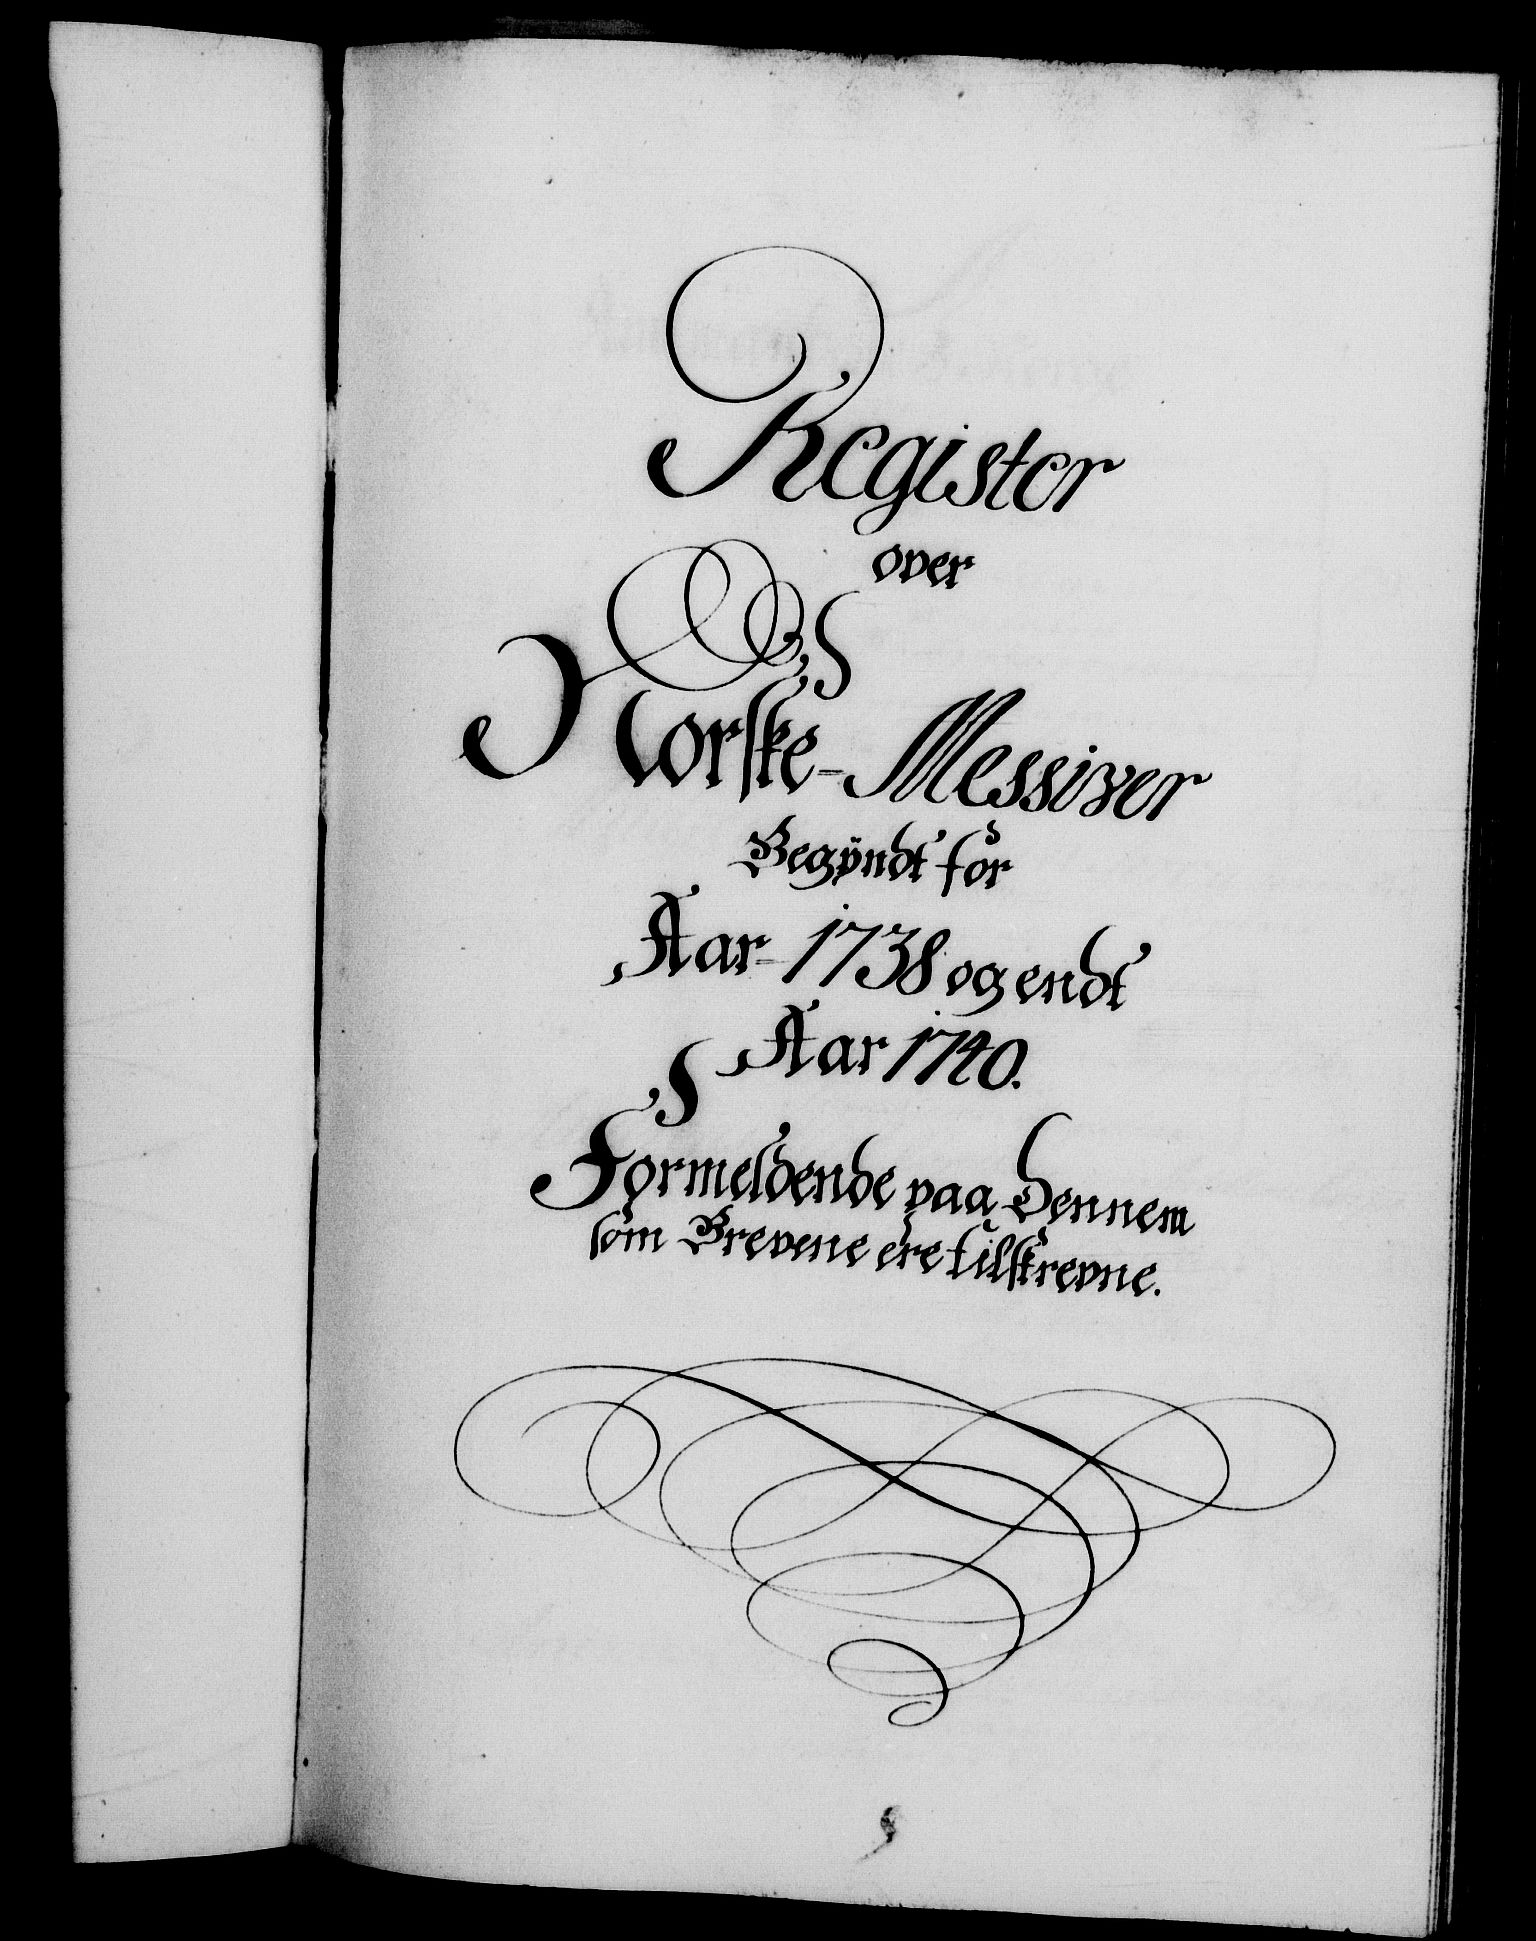 Register
over
Norske-Messiver
Begÿndt for
Aar 1738 og endt
Aar 1740.
Formeldende paa Dennem
som Brevene ere tilskrevne.